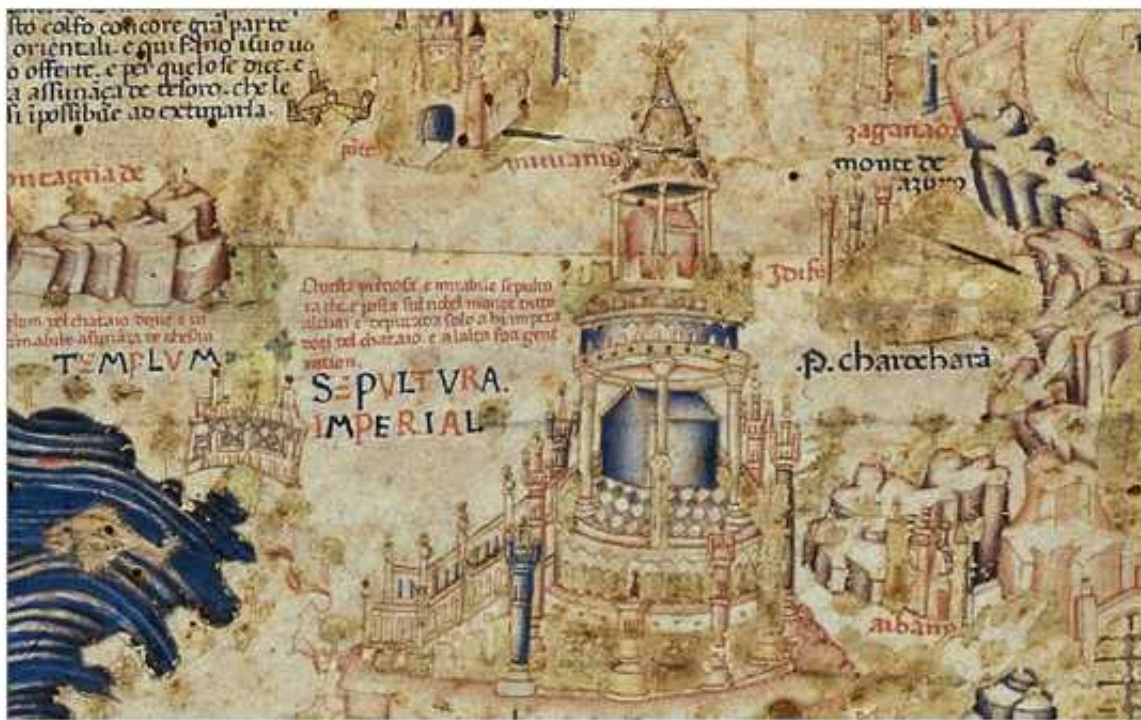 sto colfo concore grã parte
orientali. e qui fano i suo uo
o offerte. e per quelo se dice. e
a assunãça de tesoro. che le
si ipossibile ad extimaria.
mivanis
zaganao
monte de
azuro
ontagna de
Questa preciosa. e mirabile sepultu
ra che. e posta sul nobel monte dito
alchai e deputada solo a hi impera
dori del chataio. e a lalta son gene
ration.
del chataio
TEMPLVM
SEPVLTVRA.
IMPERIAL
.P. charochara
albang